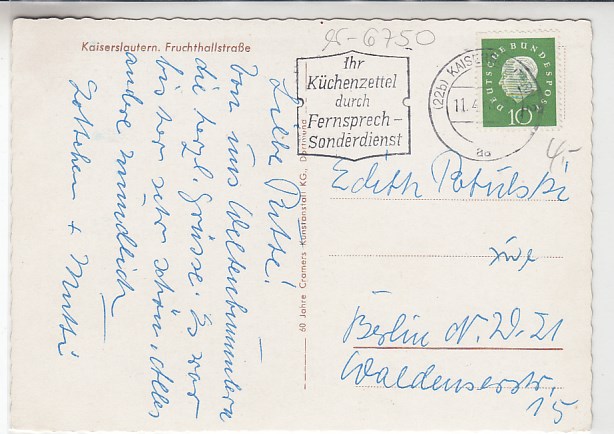 Kaiserslautern. Fruchthallstraße
Liebe Putti!
Von uns Weltenbummlern
die herzl. Grüsse. Es war
bisher sehr schön, Alles
andre mündlich
+ Mutti
60 Jahre Cramers Kunstanstalt KG., Dortmund
gr-6750
Ihr
Küchenzettel
durch
Fernsprech-
Sonderdienst
(22b) KAISE
11.4
aa
DEUTSCHE BUNDESPOST
10
4,-
Edith
Berlin N.W. 21
Waldenserstr.
15